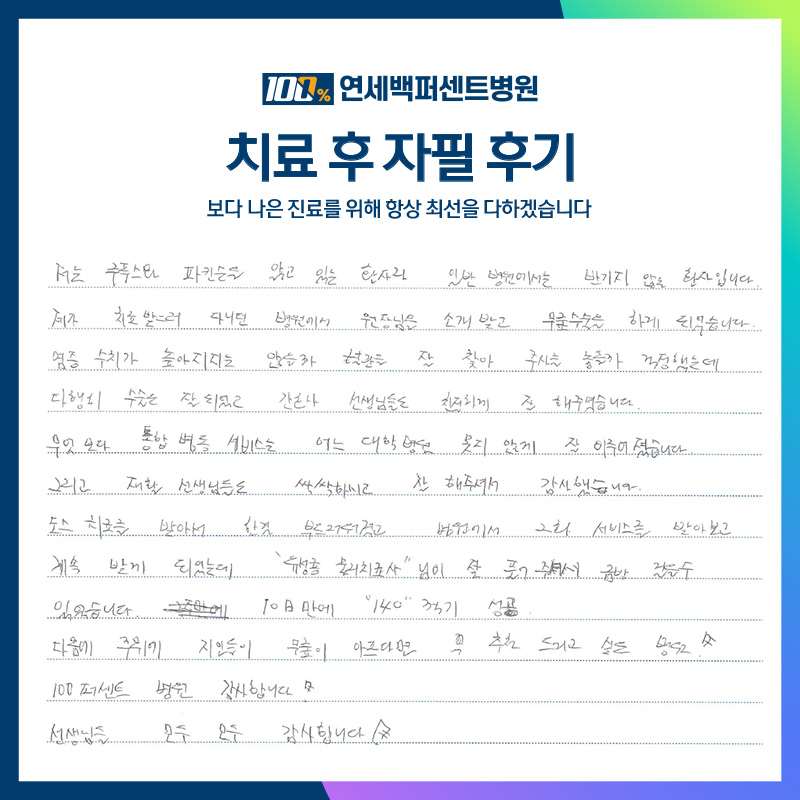 100% 연세백퍼센트병원
치료 후 자필 후기
보다 나은 진료를 위해 항상 최선을 다하겠습니다
저는 루푸스와 파킨슨을 앓고 있는 환자라 일반 병원에서는 반기지 않을 환자입니다.
제가 치료 받으러 다니던 병원에서 원장님을 소개 받고 무릎수술을 하게 되었습니다.
염증 수치가 높아지지는 않을까 혈관을 잘 찾아 주사를 놓을까 걱정했는데
다행히 수술은 잘 되었고 간호사 선생님들도 친절하게 잘 해주셨습니다.
무엇 보다 통합 병동 서비스는 어느 대학병원 못지 않게 잘 이루어 졌습니다.
그리고 재활 선생님들도 싹싹하시고 잘 해주셔서 감사했습니다.
도수 치료를 받아서 한결 부드러워졌고 병원에서 2회 서비스를 받아보고
계속 받게 되었는데 "유성종 물리치료사"님이 잘 풀어 주셔서 금방 걸을수
있었습니다. 10일만에 "140" 꺾기 성공.
다음에 주위에 지인들이 무릎이 아프다면 꼭 추천 드리고 싶은 병원!
100퍼센트 병원 감사합니다
선생님들 모두 모두 감사합니다